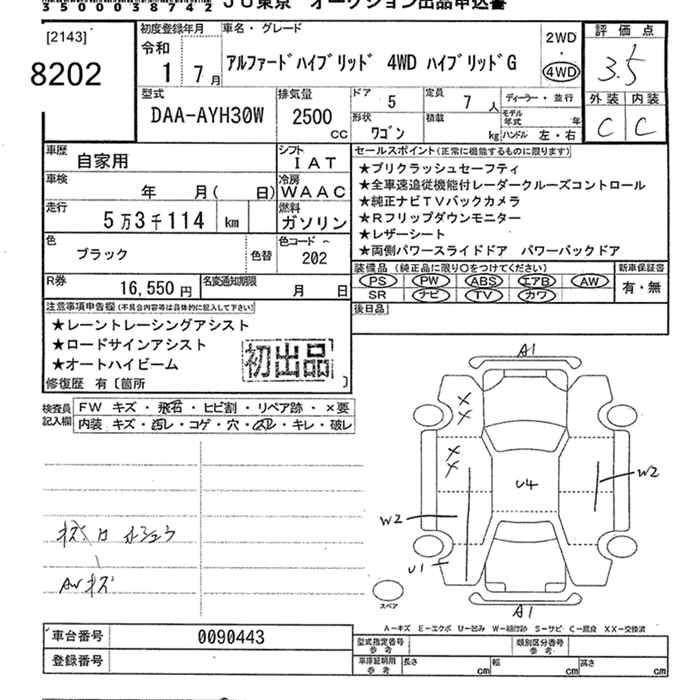 350003874 2
JU東京 オークション出品申込書
[2143]
8202
初度登録年月
令和
1 7月
車名・グレード
アルファードハイブリッド 4WD ハイブリッドG
2WD
・
4WD
評価点
3.5
外装 内装
C C
型式
DAA-AYH30W
排気量
2500
CC
ドア 5
定員 7 人
ディーラー・並行
形状
ワゴン
積載
kg
モデル年式 年
ハンドル 左・右
車歴 自家用
シフト
IAT
車検 年 月( 日)
冷房
WAAC
走行 5万3千114 km
燃料
ガソリン
色 ブラック 色替
色コード
202
R券 16,550円
名変通知期限 月 日
セールスポイント(正常に機能するものに限ります)
★プリクラッシュセーフティ
★全車速追従機能付レーダークルーズコントロール
★純正ナビTVバックカメラ
★Rフリップダウンモニター
★レザーシート
★両側パワースライドドア パワーバックドア
装備品(純正品に限り○をつけてください)
PS PW ABS エアB AW
SR ナビ TV カワ
新車保証書
有・無
後日品
注意事項申告欄(不具合内容等は具体的に記入して下さい)
★レーントレーシングアシスト
★ロードサインアシスト
★オートハイビーム
初出品
修復歴 有〔箇所 〕
検査員記入欄
FW キズ・飛石・ヒビ割・リペア跡・×要
内装 キズ・汚レ・コゲ・穴・スレ・キレ・破レ
AWキズ
A1
U4
W2
W2
U1
A1
スペア
A-キズ E-エクボ U-凹み W-補修跡 S-サビ C-腐食 XX-交換済
車台番号 0090443
登録番号
型式指定番号
参考
類別区分番号
参考
車庫証明用
参考
長さ cm 幅 cm 高さ cm